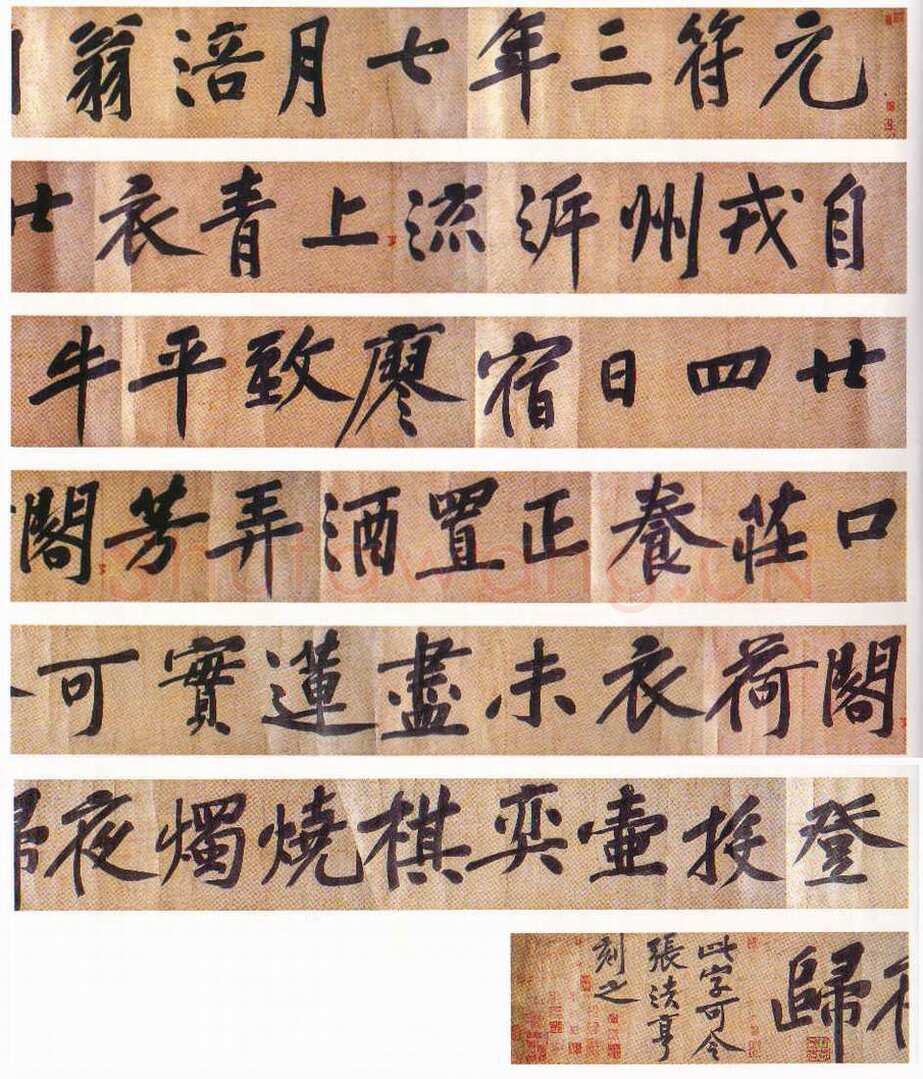 元符三年七月涪翁
自戎州泝流上青衣
廿四日宿廖致平牛
口莊養正置酒弄芳閣
閣荷衣未盡蓮實可
登投壺奕棋燒燭夜
歸
此字可令
張法亨
刻之